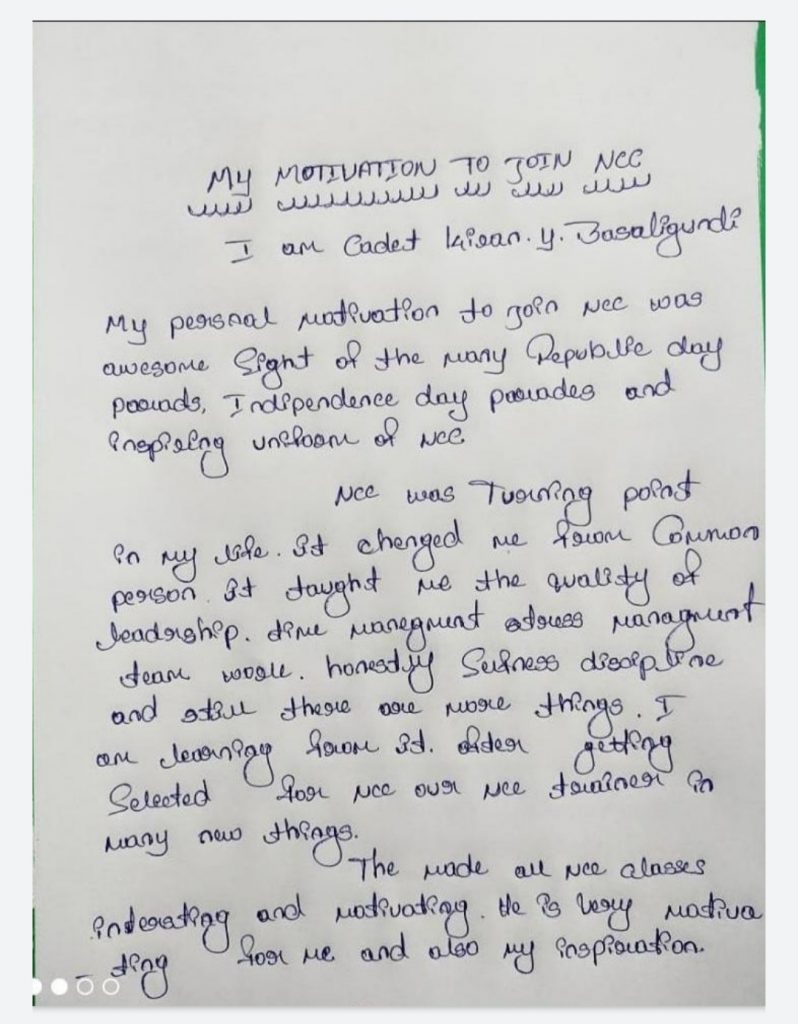 MY MOTIVATION TO JOIN NCC
I am Cadet Kiran. Y. Basaligundi
My personal motivation to join NCC was
awesome Sight of the many Republic day
parads, Independence day parades and
inspiring uniform of NCC
NCC was Turning point
in my life. It chenged me from Common
person. It taught me the quality of
leadership. time manegment stress managment
team work. honestly discipline
and still there are more things. I
am learning from It. after getting
Selected for NCC our NCC trainer in
many new things.
The made all NCC classes
interesting and motivating. He is very motiva
- ting for me and also my inspiration.